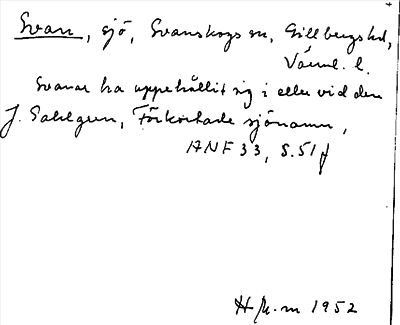 Svan, sjö, Svanskogs sn, Gillbergs hd,
Värml. l.
Svanar ha uppehållit sig i eller vid den
J. Sahlgren, Förkortade sjönamn,
ANF 33, S. 51 f
1952